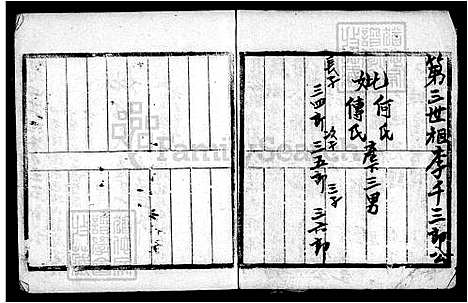 第三世祖李千三郎公
妣何氏
妣傅氏 產下三男
長子 三四郎 次子 三五郎 三子 三六郎
FamilySearch